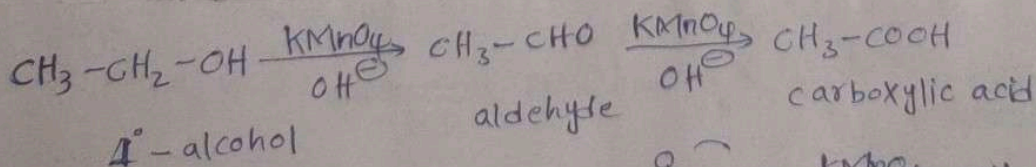 CH₃-CH₂-OH KMnO₄ OH⊖ CH₃-CHO KMnO₄ OH⊖ CH₃-COOH
1°-alcohol aldehyde carboxylic acid